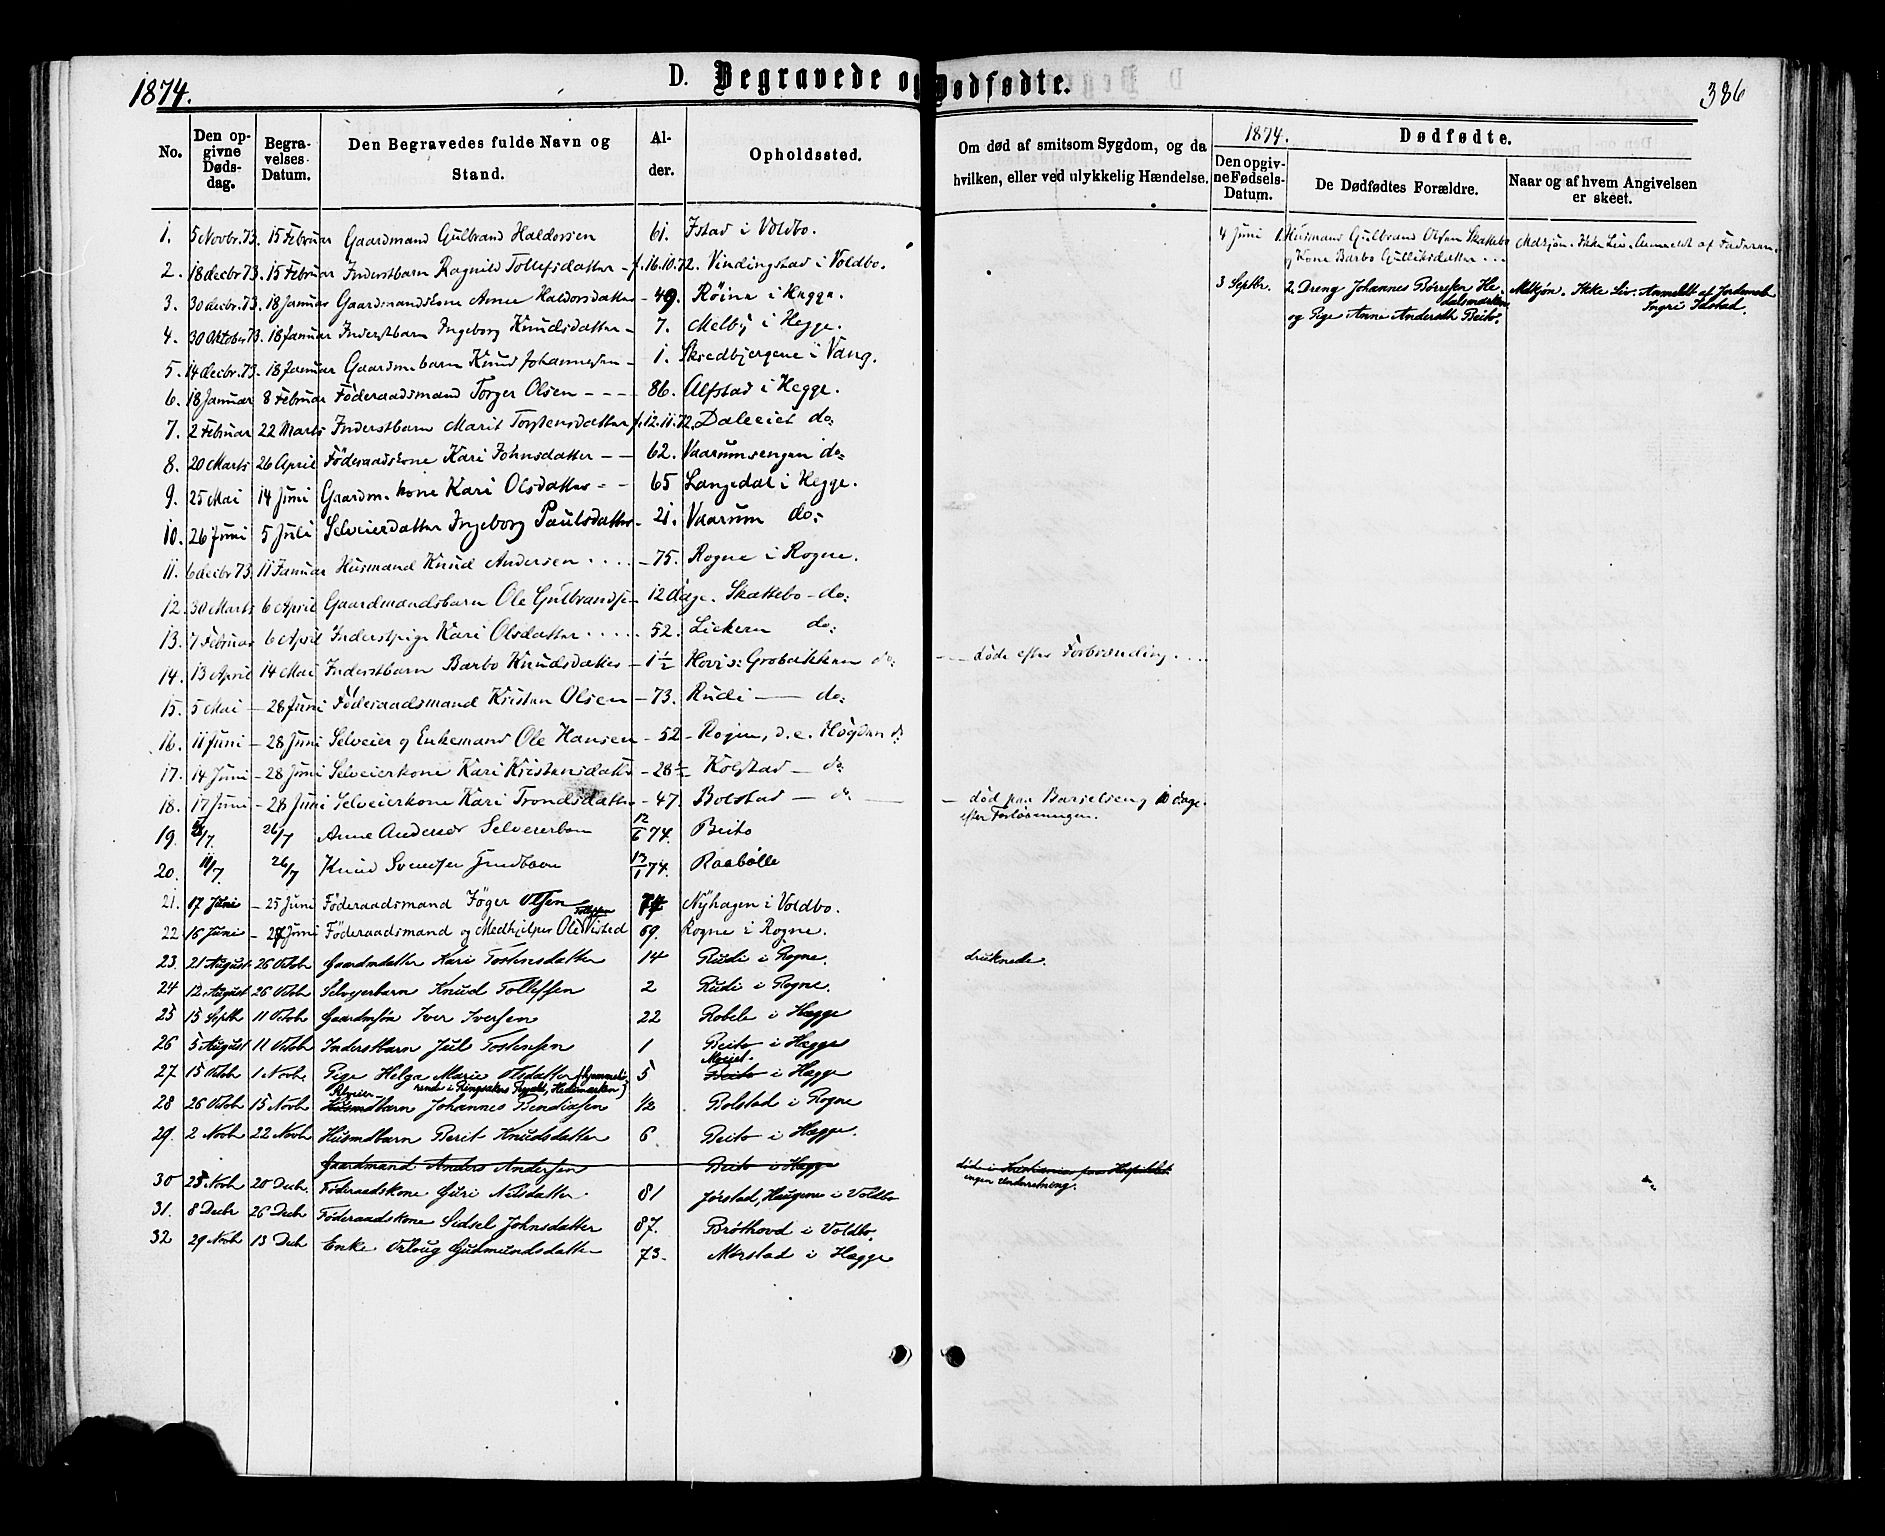 1874.
D. Begravede og Dødfødte.
386
No. Den opgivne Dødsdag. Begravelses-Datum. Den Begravedes fulde Navn og Stand. Alder. Opholdssted. Om død af smitsom Sygdom, og da hvilken, eller ved ulykkelig Hændelse.
1874. Dødfødte.
Den opgivne Fødsels-Datum. De Dødfødtes Forældre. Naar og af hvem Angivelsen er skeet.
1. 5 Novbr. 73. 15 Februar Gaardmand Gulbrand Haldorsen 61. Istad i Voldbo.
2. 18 decbr. 73. 15 Februar Inderstbarn Ragnild Tollefsdatter f. 16.10.72. Vindingstad i Voldbo.
3. 30 decbr. 73. 18 Januar Gaardmandskone Anne Haldorsdatter - 49. Røine i Hegge.
4. 30 Oktober 73. 18 Januar Inderstbarn Ingeborg Knudsdatter - 7. Melby i Hegge.
5. 14 decbr. 73. 18 Januar Gaardmbarn Knud Johannesen - 1. Skredbjergene i Vang.
6. 18 Januar 8 Februar Föderaadsmand Torger Olsen - - - 86. Alfstad i Hegge.
7. 2 Februar 22 Marts Inderstbarn Marit Torstensdatter f. 12.11.72. Daleeiet do:
8. 20 Marts 26 April Föderaadskone Kari Johnsdatter - - 62. Vaarumsengen do:
9. 25 Mai 14 Juni Gaardm. kone Kari Olsdatter - - 65 Langedal i Hegge.
10. 26 Juni 5 Juli Selveierdatter Ingeborg Paulsdatter - 21. Vaarum do:
11. 6 decbr 73. 11 Januar Husmand Knud Andersen . . . . - 75. Rogne i Rogne.
12. 30 Marts 6 April Gaardmandsbarn Ole Gulbrandse - 12 dage. Skattebo - do:
13. 7 Februar 6 April Inderstpige Kari Olsdatter . . . . . 52. Lickern do:
14. 13 April 14 Mai Inderstbarn Barbo Knudsdatter - 1 1/2 Hovi s: Grobækken do: - - døde efter Forbrænding . . .
15. 5 Mai - 28 Juni Föderaadsmand Kristen Olsen - 73. Rudi - do:
16. 11 Juni - 28 Juni Selveier og Enkemand Ole Hansen - 52 - Rogne, d. e. do:
17. 14 Juni - 28 Juni Selveierkone Kari Kristensdatter - 28 1/2 Kolstad - do:
18. 17 Juni - 28 Juni Selveierkone Kari Trondsdatter - 47. Bolstad - do - død paa Barselseng 10 dage
efter Forløsningen.
19. /7. 26/7 Anne Andersdr Selveierbarn 12/6 74. Beito
20. 11/7. 26/7 Knud Svendsen 13/1 74. Raabölle
21. 17 Juni - 25 Juni Föderaadsmand Jöger Olsen 74 Nyhagen i Voldbo.
Tollefsen
22 16 Juni - 28 Juni Föderaadsmand og Medhjelper Ole Visted 69. Rogne i Rogne.
23. 21 August 26 Octob Gaardmdatter Kari Tostensdatter 14 Rudi i Rogne. druknede.
24 12 August 26 Octob Selveierbarn Knud Tollefsen 2 Rudi i Rogne.
25 15 Septb 11 Octob Gaardmsøn Iver Iversen 22 Robøle i Hægge
26 5 August 11 Octob Inderstbarn Juul Tostensen 1 Beito i Hægge
Moejet.
27 15 Octob 1 Novb. Pige Helga Marie Olsdatter (hjemmehø- 5 Beito i Hægge
rende i Ringsakers Prgjeld, Hedemarken)
28 26 Octob 15 Novb Husmdbarn Johannes Bendixsen 1/2 Bolstad i Rogne
29. 2 Novb 22 Novb Husmdbarn Berit Knudsdatter 6 Beito i Hægge.
Gaardmand Anders Andersen Beito i Hægge død i Kristiania paa Hospitalet
ingen Underretning.
30 25 Novb 20 Decb. Föderaadskone Guri Nilsdatter 81 Jørstad, Haugene i Voldbo
31. 8 Decbr 26 Decbr Föderaadskone Sidsel Johnsdatter 87. Bröthovd i Voldbo.
32 29 Novb 13 Decb Enke Urloug Gudmundsdatter 73. Mørstad i Hægge
4 Juni 1. Husmand Gulbrand Olsen Skattebo Mdkjøn. Ikke Liv. Anmeldt af Faderen.
og Kone Barbo Gulliksdatter . . .
3 Septbr. 2. Dreng Johannes Børresen He- Mdkjøn. Ikke Liv. Anmeldt af Jordemoder
dalsmarken Ingri Idstad.
og Pige Anne Andersdtr Beito.